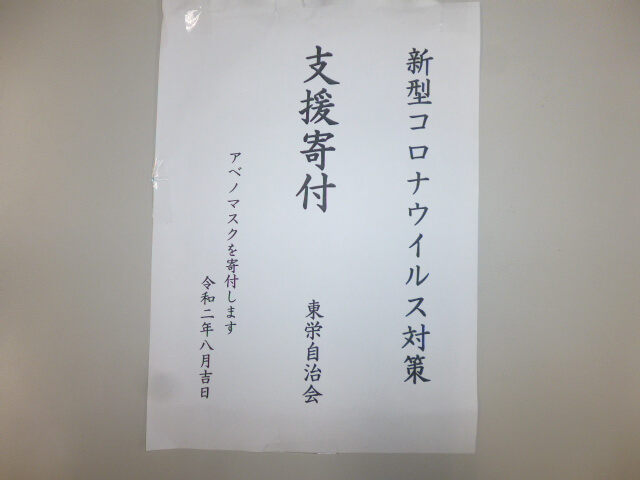 新型コロナウイルス対策
支援寄付
東栄自治会
アベノマスクを寄付します
令和二年八月吉日